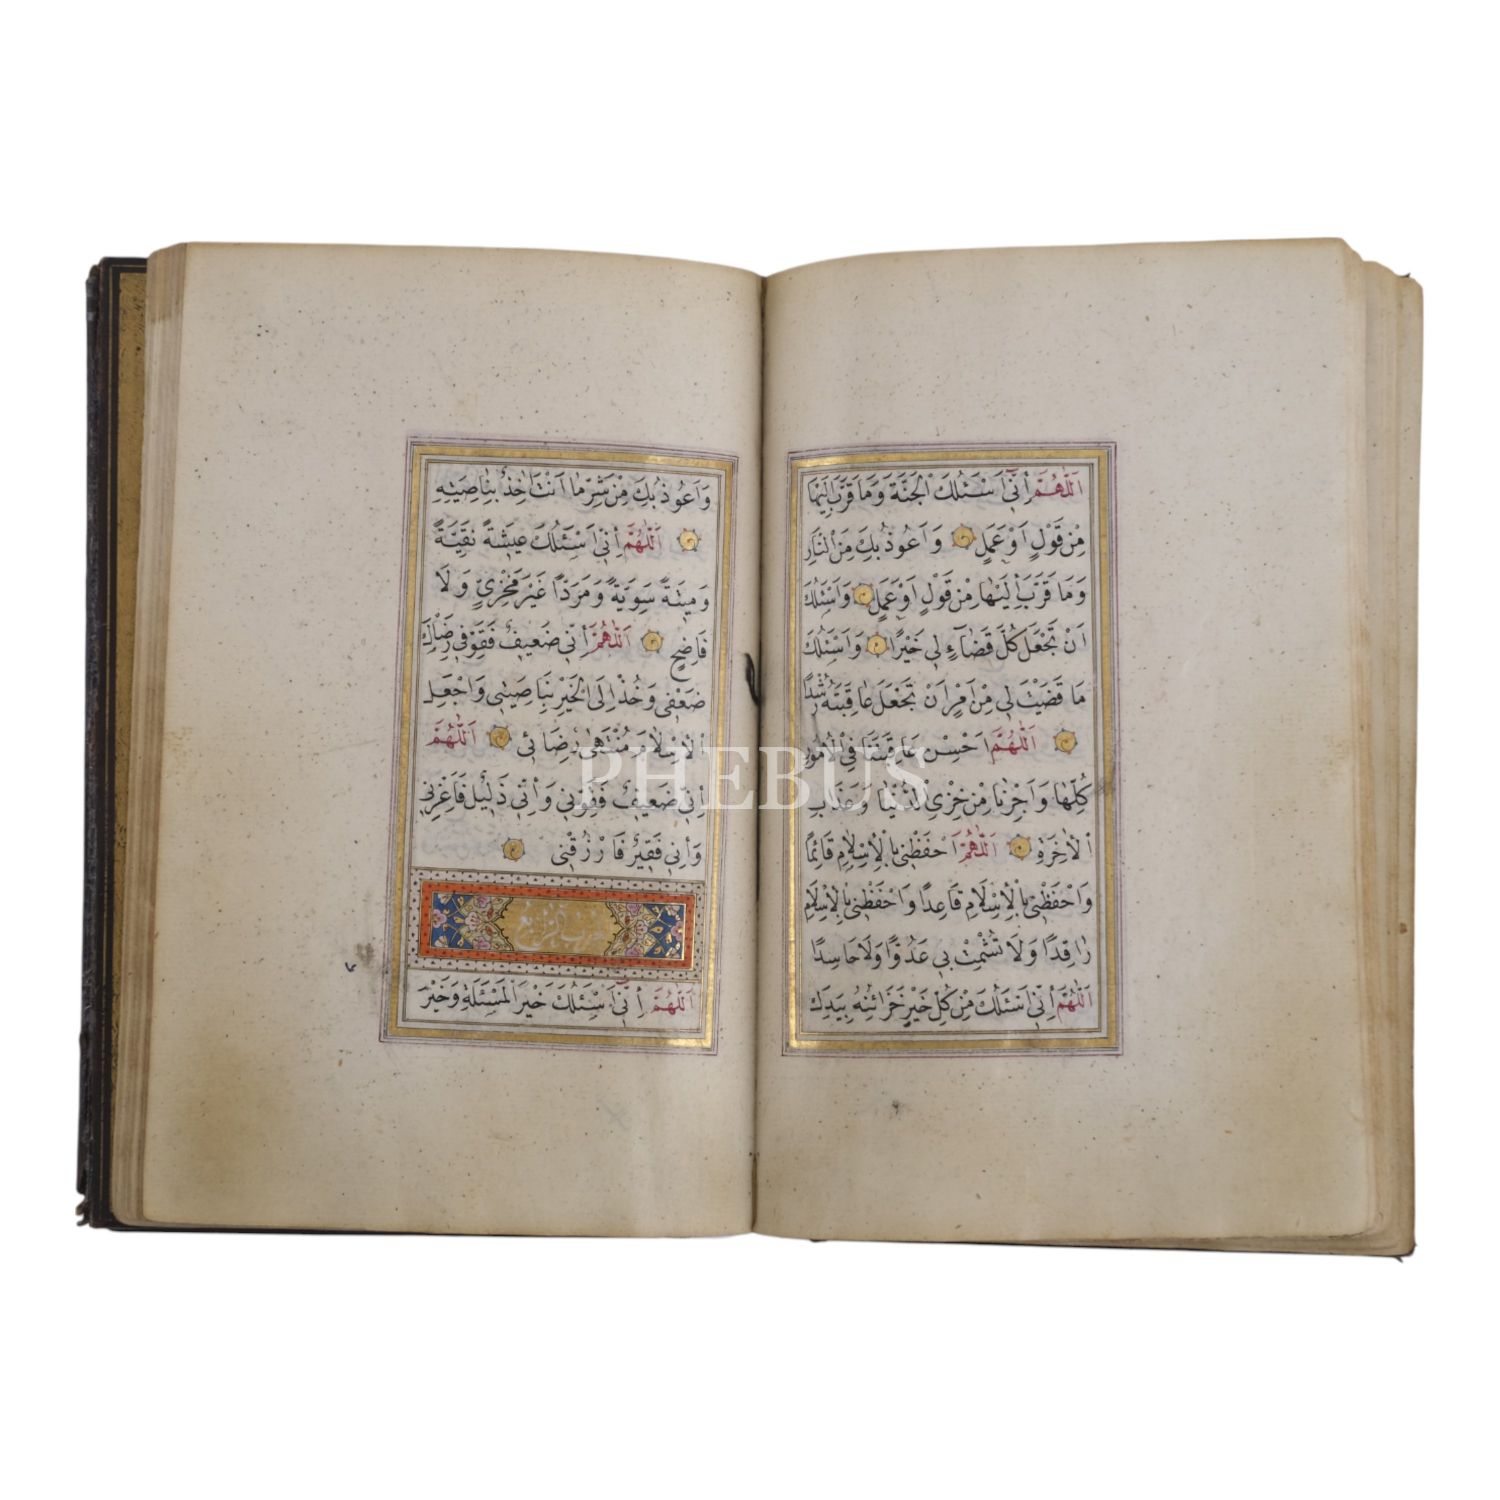 اَللّٰهُمَّ اِنّٖٓي اَسْئَلُكَ الْجَنَّةَ وَمَا قَرَّبَ اِلَيْهَا
مِنْ قَوْلٍ اَوْ عَمَلٍ وَاَعُوذُ بِكَ مِنَ النَّارِ
وَمَا قَرَّبَ اِلَيْهَا مِنْ قَوْلٍ اَوْ عَمَلٍ وَاَسْئَلُكَ
اَنْ تَجْعَلَ كُلَّ قَضَاءٍ لِي خَيْرًا وَاَسْئَلُكَ
مَا قَضَيْتَ لِي مِنْ اَمْرٍ اَنْ تَجْعَلَ عَاقِبَتَهُ رُشْدًا
اَللّٰهُمَّ اَحْسِنْ عَاقِبَتَنَا فِي الْاُمُورِ
كُلِّهَا وَاَجِرْنَا مِنْ خِزْيِ الدُّنْيَا وَعَذَابِ
الْاٰخِرَةِ اَللّٰهُمَّ احْفَظْنِي بِالْاِسْلَامِ قَائِمًا
وَاحْفَظْنِي بِالْاِسْلَامِ قَاعِدًا وَاحْفَظْنِي بِالْاِسْلَامِ
رَاقِدًا وَلَا تُشْمِتْ بِي عَدُوًّا وَلَا حَاسِدًا
اَللّٰهُمَّ اِنِّي اَسْئَلُكَ مِنْ كُلِّ خَيْرٍ خَزَائِنُهُ بِيَدِكَ
وَاَعُوذُ بِكَ مِنْ شَرِّ مَا اَنْتَ اٰخِذٌ بِنَاصِيَتِهِ
اَللّٰهُمَّ اِنِّي اَسْئَلُكَ عِيشَةً نَقِيَّةً
وَمِيتَةً سَوِيَّةً وَمَرَدًّا غَيْرَ مَخْزِيٍّ وَلَا
فَاضِحٍ اَللّٰهُمَّ اِنِّي ضَعِيفٌ فَقَوِّ فِي رِضَاكَ
ضَعْفِي وَخُذْ اِلَى الْخَيْرِ بِنَاصِيَتِي وَاجْعَلِ
الْاِسْلَامَ مُنْتَهٰى رِضَائِي اَللّٰهُمَّ
اِنِّي ضَعِيفٌ فَقَوِّنِي وَاِنِّي ذَلِيلٌ فَاَعِزَّنِي
وَاِنِّي فَقِيرٌ فَارْزُقْنِي
اَللّٰهُمَّ اِنّٖٓي اَسْئَلُكَ خَيْرَ الْمَسْئَلَةِ وَخَيْرَ
PHEBUS